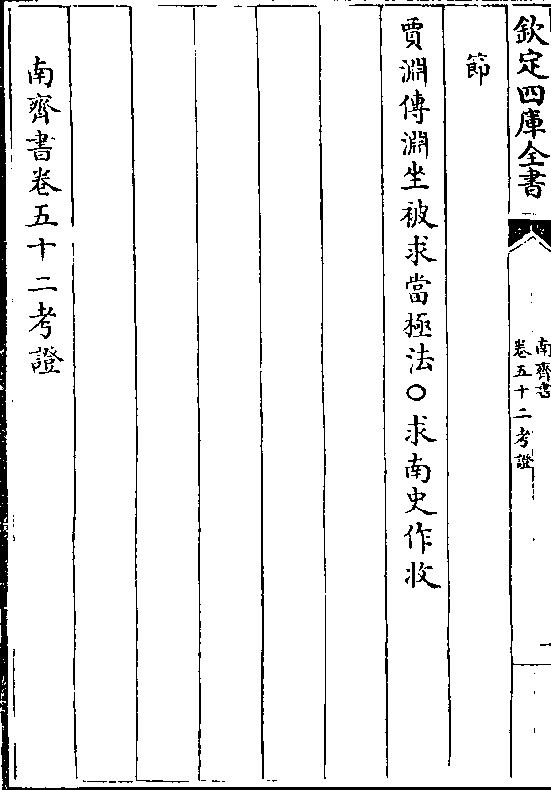 欽定四庫全書
南齊書
卷五十二考證
一
節
賈淵傳淵坐被求當極法○求南史作收
南齊書卷五十二考證